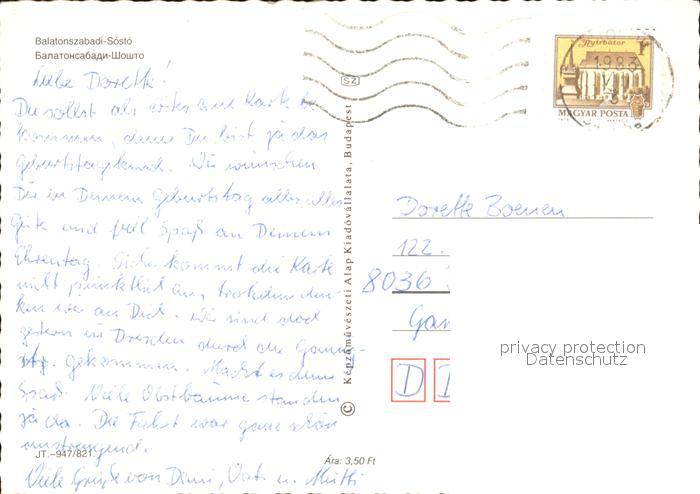 Balatonszabadi-Sóstó
Балатонсабади-Шошто
Liebe Dorette!
Du sollst als erstes eine Karte be-
kommen, denn Du bist ja das
Geburtstagskind. Wir wünschen
Dir zu Deinem Geburtstag alles alles
Gute und viel Spaß an Deinem
Ehrentag. Sicher kommt die Karte
nicht pünktlich an, trotzdem den-
ken wir an Dich. Wir sind
gestern in Dresden durch die
str. gekommen. Macht es dem
Spaß. Viele Obstbäume standen
ja da. Die Fahrt war ganz schön
anstrengend.
Viele Grüße von Dani, Vati u. Mutti
JT.–947/821.
Ára: 3,50 Ft
SZ
© Képzőművészeti Alap Kiadóvállalata, Budapest
Nyírbátor
1 Ft
MAGYAR POSTA
1983
Dorette Boenen
122.
8036
Gan
D
privacy protection
Datenschutz